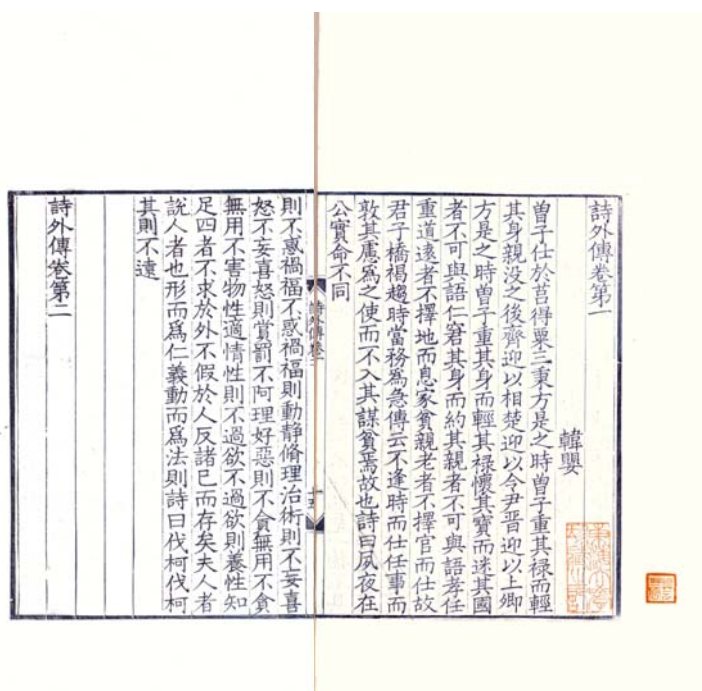 詩外傳卷第一
韓嬰
曾子仕於莒得粟三秉方是之時曾子重其祿而輕
其身親没之後齊迎以相楚迎以令尹晋迎以上卿
方是之時曾子重其身而輕其祿懷其寶而迷其國
者不可與語仁窘其身而約其親者不可與語孝任
重道遠者不擇地而息家貧親老者不擇官而仕故
君子橋褐趨時當務爲急傳云不逢時而仕任事而
敦其慮爲之使而不入其謀貧焉故也詩曰夙夜在
公實命不同
則不惑禍福不惑禍福則動靜脩理治術則不妄喜
怒不妄喜怒則賞罰不阿理好惡則不貪無用不貪
無用不害物性適情性則不過欲不過欲則養性知
足四者不求於外不假於人反諸己而存矣夫人者
說人者也形而爲仁義動而爲法則詩曰伐柯伐柯
其則不遠
詩外傳卷第二